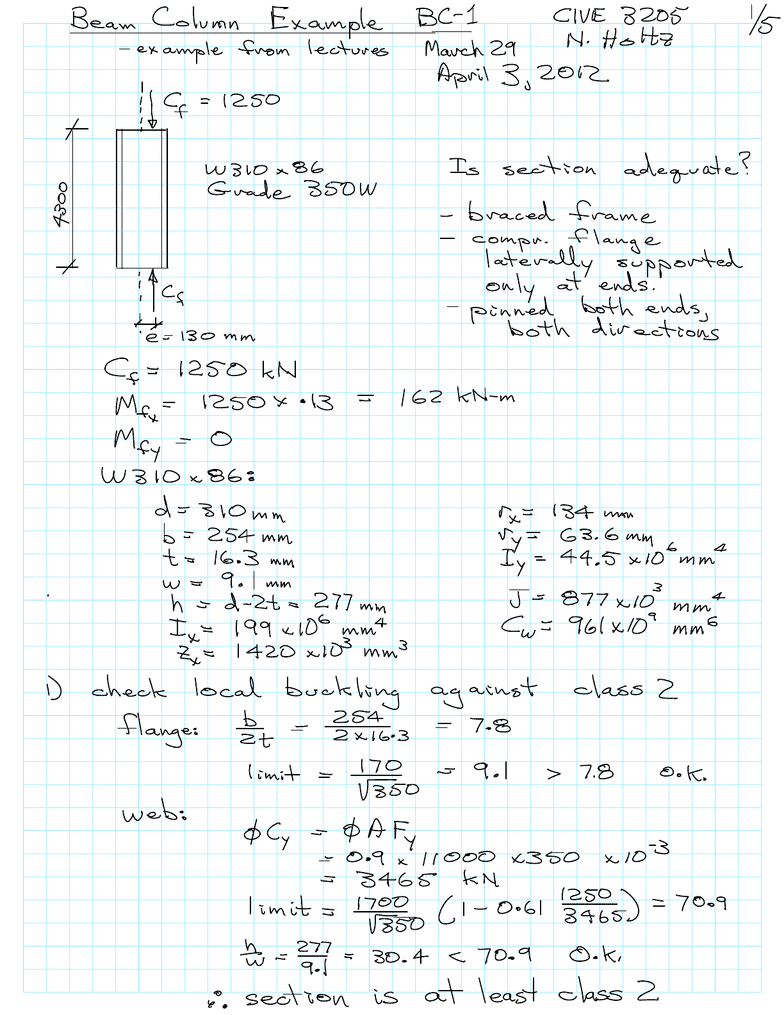 Beam Column Example BC-1 CIVE 3205 1/5
- example from lectures March 29 N. Holtz
April 3, 2012
Cf = 1250
4300
W310 x 86
Grade 350W
Is section adequate?
- braced frame
- compr. flange
laterally supported
only at ends.
- pinned both ends,
both directions
Cf
e = 130 mm
Cf = 1250 kN
Mfx = 1250 x .13 = 162 kN-m
Mfy = 0
W310 x 86:
d = 310 mm
b = 254 mm
t = 16.3 mm
w = 9.1 mm
h = d-2t = 277 mm
Ix = 199 x10^6 mm^4
Zx = 1420 x10^3 mm^3
rx = 134 mm
ry = 63.6 mm
Iy = 44.5 x10^6 mm^4
J = 877 x10^3 mm^4
Cw = 961 x10^9 mm^6
1) check local buckling against class 2
flange: b/2t = 254/(2 x 16.3) = 7.8
limit = 170/√350 = 9.1 > 7.8 O.K.
web:
ϕCy = ϕ A Fy
= 0.9 x 11000 x 350 x 10^-3
= 3465 kN
limit = 1700/√350 (1 - 0.61 1250/3465) = 70.9
h/w = 277/9.1 = 30.4 < 70.9 O.K.
∴ section is at least class 2